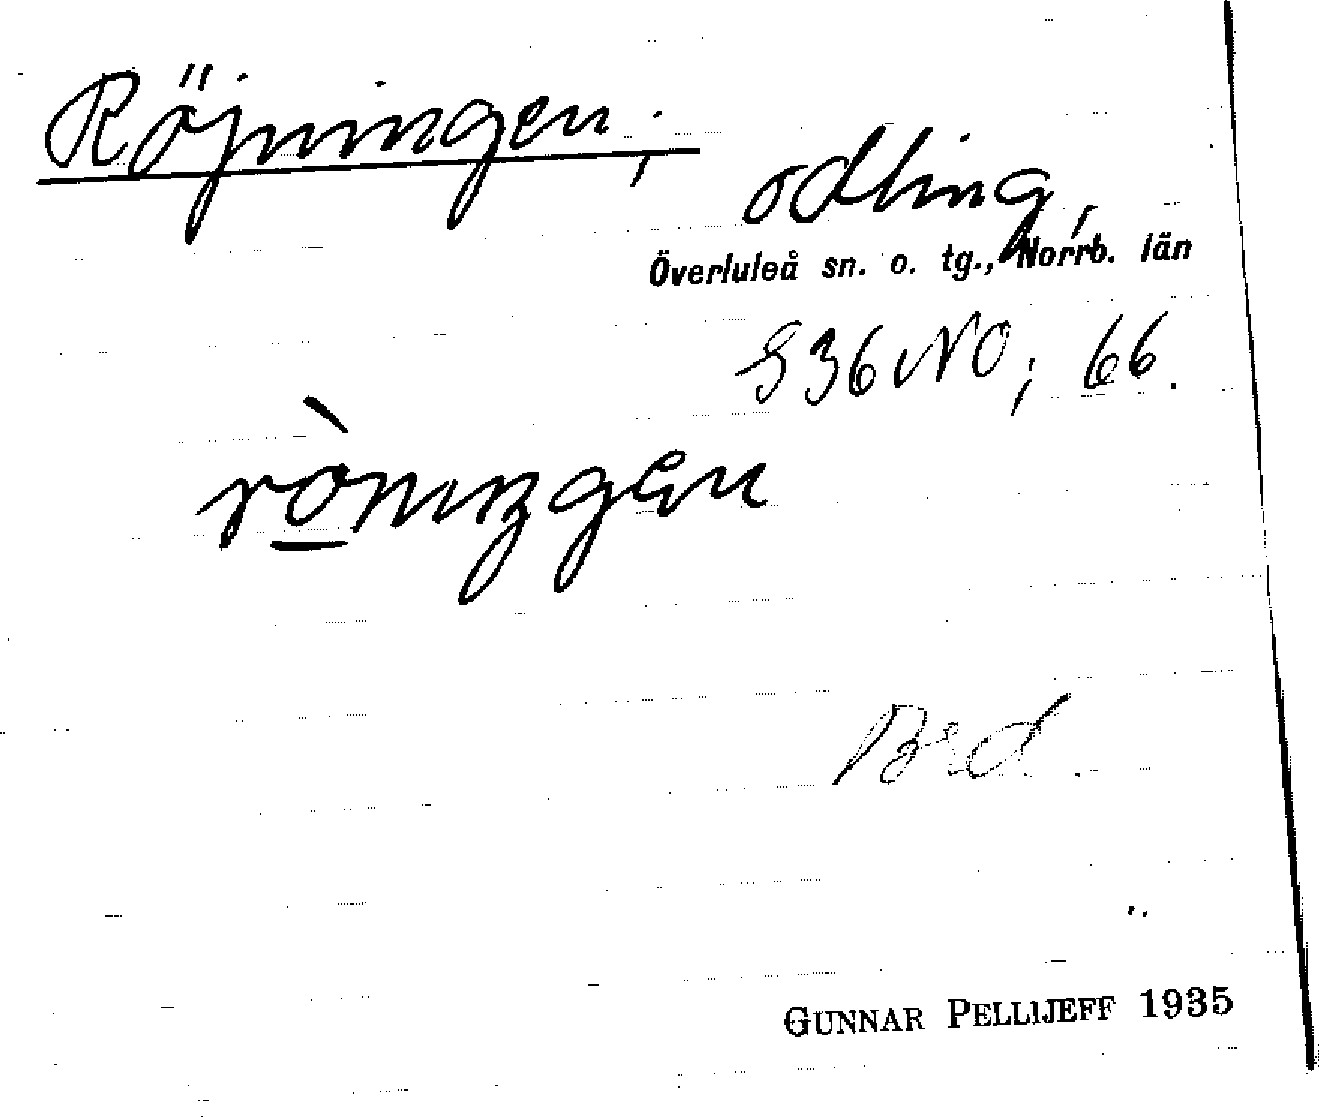 Röjningen;
odling,
Överluleå sn. o. tg., Norrb. län
S 36 NO; 66.
Brd.
GUNNAR PELLIJEFF 1935